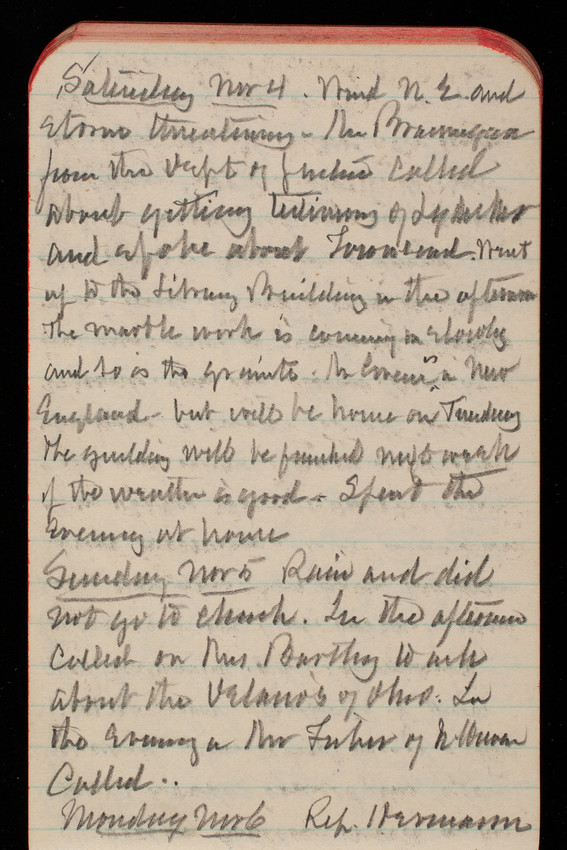 Saturday Nov 4. Wind N.E. and
storm threatening. Mr Brannigan
from the Dept of Justice called
about getting testimony of
and spoke about Townsend. Went
up to the Library Building in the afternoon
The marble work is coming in slowly
and so is the granite. Mr Green is in New
England - but will be home on Tuesday
The guilding will be finished next week
if the weather is good. Spent the
evening at home
Sunday Nov 5 Rain and did
not go to church. In the afternoon
called on Mrs. to ask
about the of Ohio. In
the evening a Mr of
called..
Monday Nov 6 Rep. Hermann